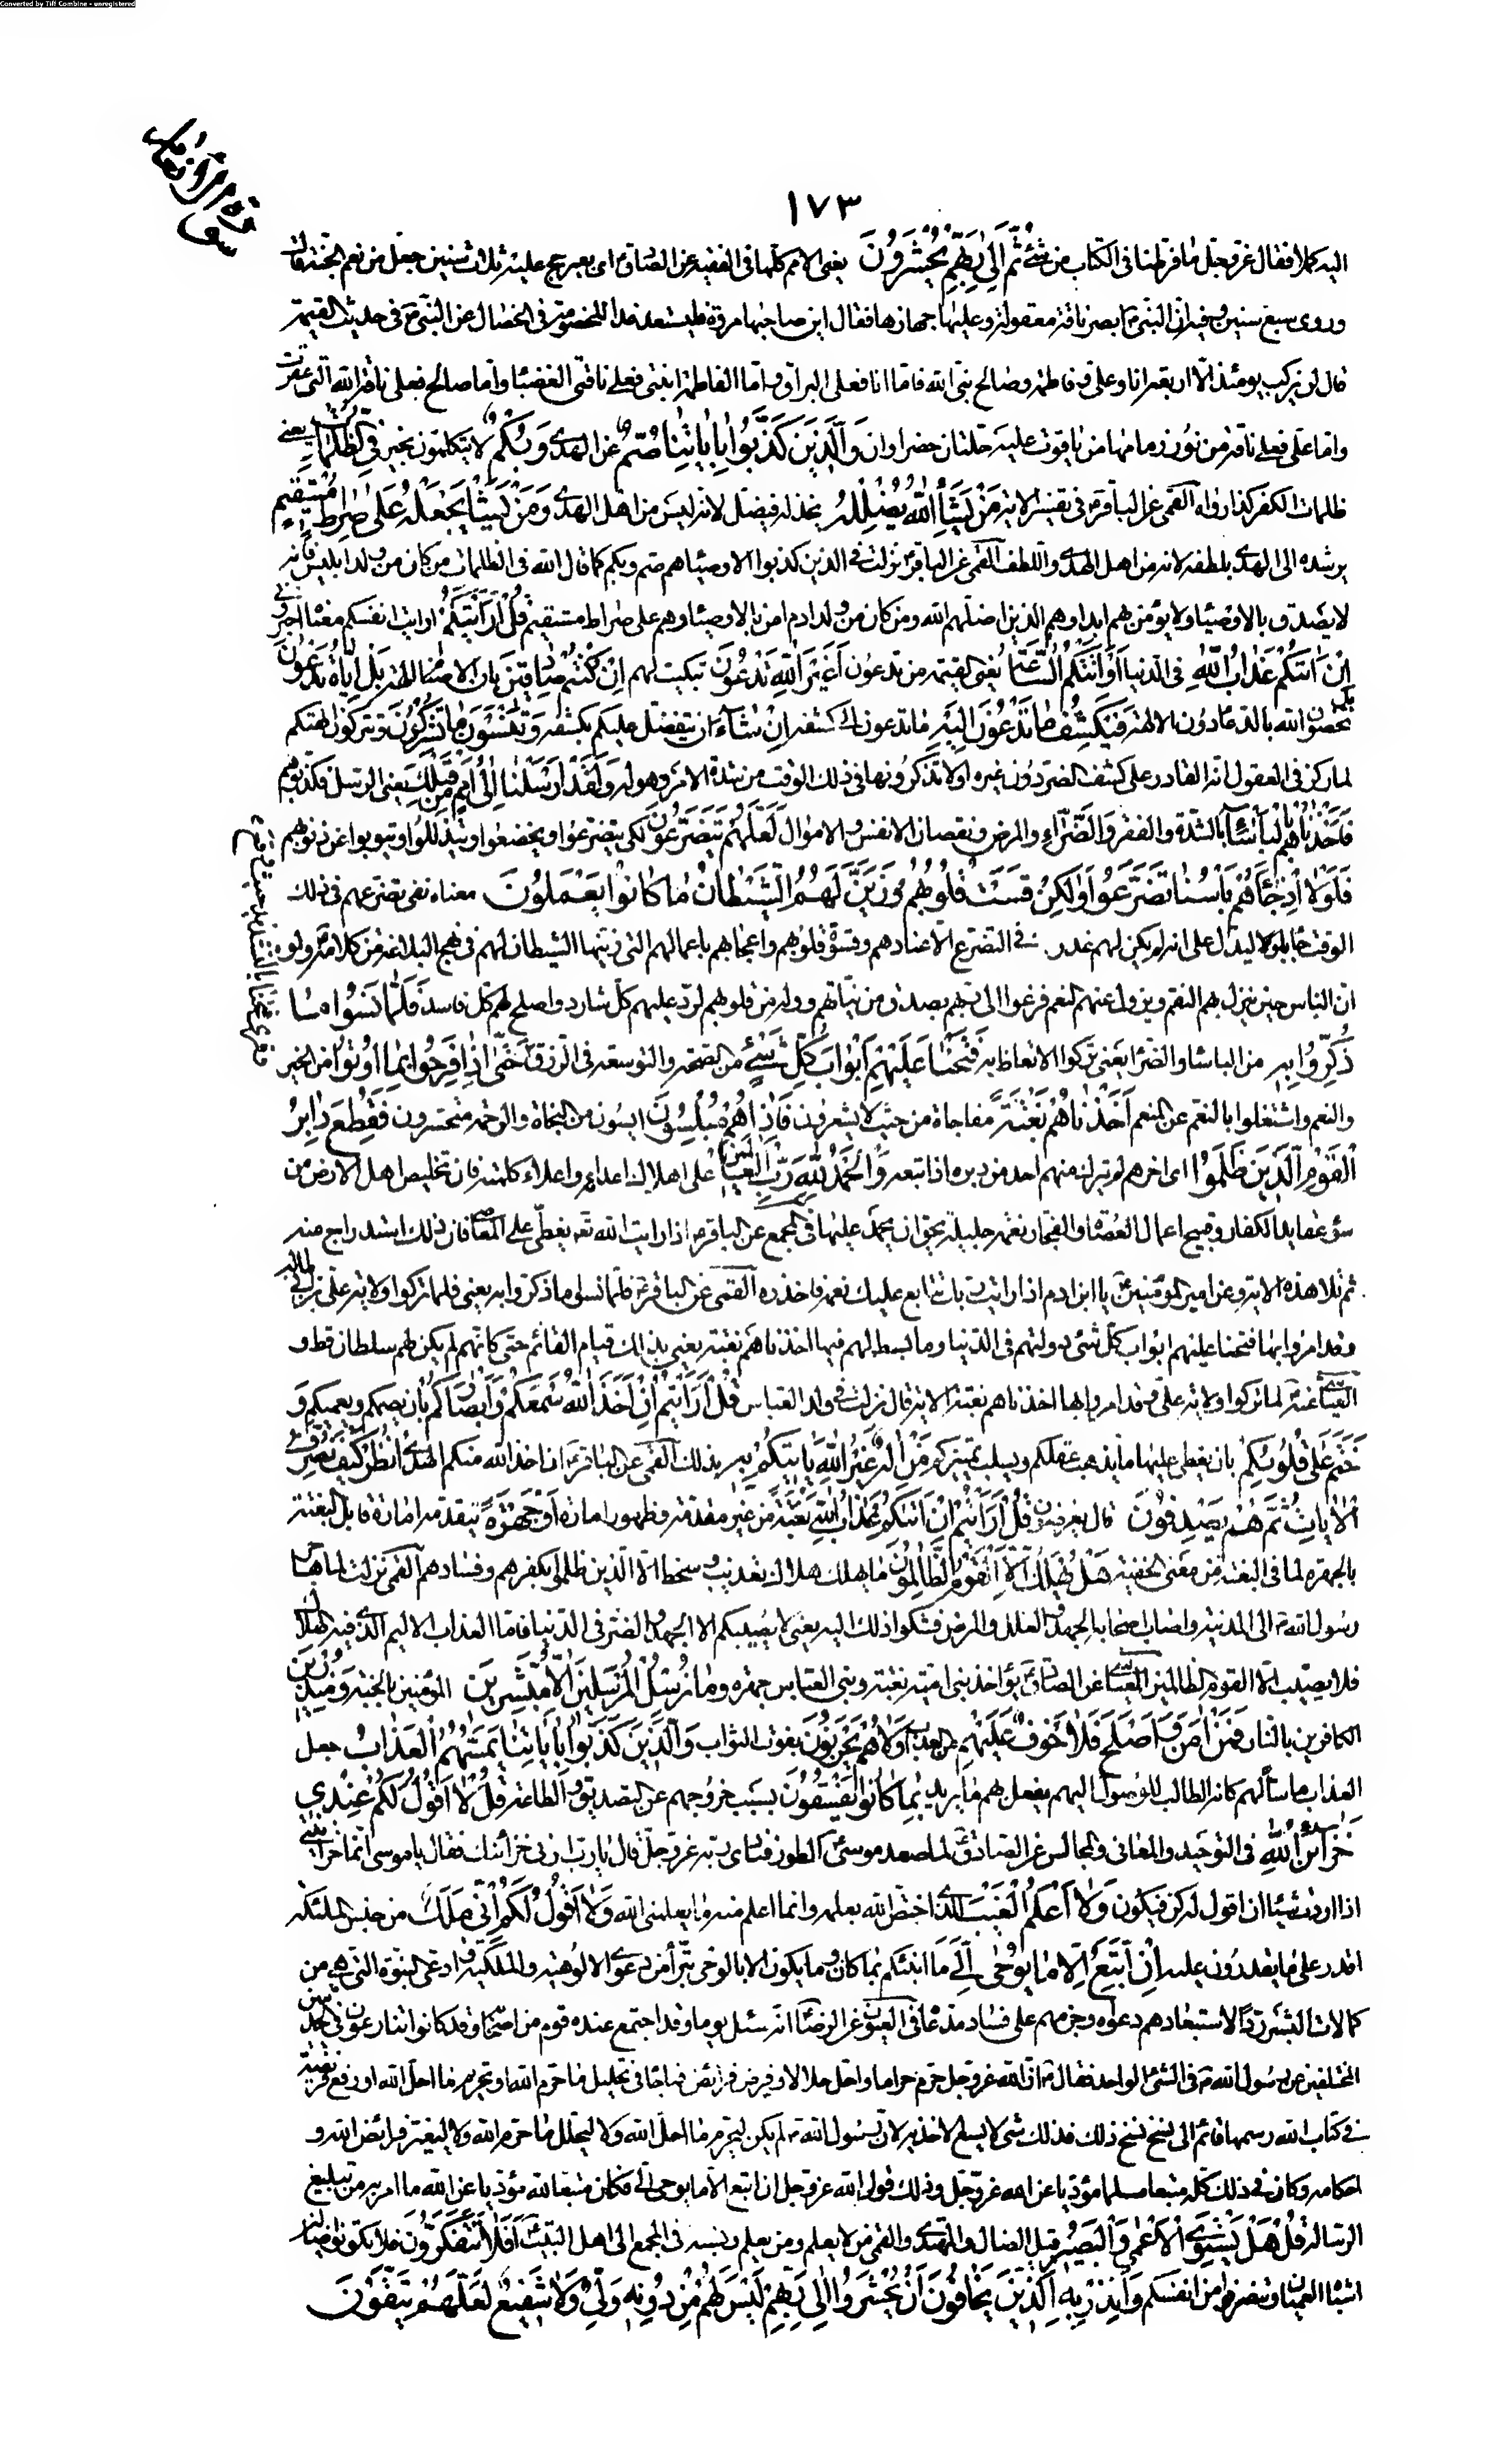 Converted by Tiff Combine - unregistered
سورة الانعام
١٧٣
اليه كملا فقال عز وجل ما فرطنا فى الكتاب من شئ ثُمَّ اِلىٰ رَبِّهِمْ يُحْشَرُونَ يعنى الامم كلها فى الفقيه عن الصادق اى بعير حج عليه ثلاث سنين جعل من نعم الجنة قال
وروى سبع سنين وفيه ان النبى ابصر ناقة معقولة وعليها جهازها فقال اين صاحبها مروه فليستعد غدا للخصومة فى الخصال عن النبى فى حديث القيمة
قال لن يركب يومئذ الا اربعة انا وعلى وفاطمة وصالح نبى الله فاما انا فعلى البراق واما فاطمة ابنتى فعلى ناقتى الغضبا واما صالح فعلى ناقة الله التى عقرت
واما على فعلى ناقة من نور زمامها من ياقوت عليه حلتان خضراوان وَالَّذينَ كَذَّبُوا بِاٰيٰاتِنٰا صُمٌّ عن الهدى وَبُكْمٌ لا يتكلمون بخير فِى الظُّلُمٰاتِ يعنى
ظلمات الكفر كذا رواه القمى عن الباقر فى تفسير الاية مَنْ يَشَأِ اللهُ يُضْلِلْهُ يخذله فيضل لانه ليس من اهل الهدى وَمَنْ يَشَأْ يَجْعَلْهُ عَلىٰ صِرٰاطٍ مُسْتَقيمٍ
يرشده الى الهدى بلطفه لانه من اهل الهدى واللطف القمى عن الباقر نزلت فى الذين كذبوا الاوصياء هم صم وبكم كما قال الله فى الظلمات من كان من ولد ابليس فانه
لا يصدق بالاوصيا ولا يؤمن بهم ابدا وهم الذين اضلهم الله ومن كان من ولد ادم امن بالاوصيا وهم على صراط مستقيم قُلْ اَرَاَيْتَكُمْ ارايت انفسكم معناه اخبرونى
اِنْ اَتٰيكُمْ عَذٰابُ اللهِ فى الدنيا اَوْ اَتَتْكُمُ السّٰاعَةُ يعنى القيمة من تدعون اَغَيْرَ اللهِ تَدْعُونَ تبكيت لهم اِنْ كُنْتُمْ صٰادِقينَ بان الاصنام الهة بَلْ اِيّٰاهُ تَدْعُونَ
بل تخصون الله بالدعا دون الالهة فَيَكْشِفُ مٰا تَدْعُونَ اِلَيْهِ ما تدعون الى كشفه اِنْ شٰاءَ ان يتفضل عليكم بكشفه وَتَنْسَوْنَ مٰا تُشْرِكُونَ وتتركون الهتكم
لما ركز فى العقول انه القادر على كشف الضر دون غيره او لا تذكرونها فى ذلك الوقت من شدة الامر وهوله وَلَقَدْ اَرْسَلْنٰا اِلىٰ اُمَمٍ مِنْ قَبْلِكَ يعنى الرسل فكذبوهم
فَاَخَذْنٰاهُمْ بِالْبَاْسٰاءِ بالشدة والفقر وَالضَّرّٰاءِ والمرض ونقصان الانفس والاموال لَعَلَّهُمْ يَتَضَرَّعُونَ لكى يتضرعوا ويخضعوا ويتذللوا ويتوبوا عن ذنوبهم
فَلَوْلٰا اِذْ جٰاءَهُمْ بَاْسُنٰا تَضَرَّعُوا وَلٰكِنْ قَسَتْ قُلُوبُهُمْ وَزَيَّنَ لَهُمُ الشَّيْطٰانُ مٰا كٰانُوا يَعْمَلُونَ معناه نفى تضرعهم فى ذلك
الوقت جا بلولا ليدل على انه لم يكن لهم عذر فى التضرع الا عنادهم وقسوة قلوبهم واعجابهم باعمالهم التى زينها الشيطان لهم فى نهج البلاغة من كلامه ولو
ان الناس حين ينزل بهم النقم ويزول عنهم النعم فزعوا الى ربهم بصدق من نياتهم ووله من قلوبهم لرد عليهم كل شارد واصلح لهم كل فاسد فَلَمّٰا نَسُوا مٰا
ذُكِّرُوا بِهِ من الباسا والضرا يعنى تركوا الاتعاظ به فَتَحْنٰا عَلَيْهِمْ اَبْوٰابَ كُلِّ شَئٍ من الصحة والتوسعة فى الرزق حَتّىٰ اِذٰا فَرِحُوا بِمٰا اُوتُوا من الخير
والنعم واشتغلوا بالنعم عن المنعم اَخَذْنٰاهُمْ بَغْتَةً مفاجاة من حيث لا يشعرون فَاِذٰا هُمْ مُبْلِسُونَ ايسون من النجاة والرحمة متحسرون فَقُطِعَ دٰابِرُ
الْقَوْمِ الَّذينَ ظَلَمُوا اى اخرهم لم يترك منهم احد من دبره اذا تبعه وَالْحَمْدُ لِلّٰهِ رَبِّ الْعٰالَمينَ على اهلاك اعدائه واعلاء كلمته فان تخليص اهل الارض من
سوء عقايد الكفار وقبيح اعمال العصاة والفجار نعمة جليلة يحق ان يحمد عليها فى المجمع عن الباقر اذا رايت الله تع يعطى على المعاصى فان ذلك استدراج منه
ثم تلا هذه الاية وعن امير المؤمنين يا ابن ادم اذا رايت ربك تتابع عليك نعمه فاحذره القمى عن الباقر فلما نسوا ما ذكروا به يعنى فلما تركوا ولاية على بن ابى طالب
وقد امروا بها فتحنا عليهم ابواب كل شئ دولتهم فى الدنيا وما بسط لهم فيها اخذناهم بغتة يعنى بذلك قيام القائم حتى كانهم لم يكن لهم سلطان قط و
العياشى عنه لما تركوا ولاية على وقد امروا بها اخذناهم بغتة الاية قال نزلت فى ولد العباس قُلْ اَرَاَيْتُمْ اِنْ اَخَذَ اللهُ سَمْعَكُمْ وَاَبْصٰارَكُمْ بان يصمكم ويعميكم وَ
خَتَمَ عَلىٰ قُلُوبِكُمْ بان يغطى عليها ما يذهب عقلكم ويسلب تمييزكم مَنْ اِلٰهٌ غَيْرُ اللهِ يَاْتيكُمْ بِهِ بذلك القمى عن الباقر ان اخذ الله منكم الهدى اُنْظُرْ كَيْفَ نُصَرِّفُ
الْاٰيٰاتِ ثُمَّ هُمْ يَصْدِفُونَ قال يعرضون قُلْ اَرَاَيْتَكُمْ اِنْ اَتٰيكُمْ عَذٰابُ اللهِ بَغْتَةً من غير مقدمة وظهور امارة اَوْ جَهْرَةً يتقدمه امارة قابل البغتة
بالجهرة لما فى البغتة من معنى الخفية هَلْ يُهْلَكُ اِلَّا الْقَوْمُ الظّٰالِمُونَ ما يهلك هلاك تعذيب وسخط الا الذين ظلموا بكفرهم وفسادهم القمى نزلت لما هاجر
رسول الله الى المدينة واصاب اصحابه الجهد والعلل والمرض فشكوا ذلك اليه يعنى لا يصيبكم الا الجهد والضر فى الدنيا فاما العذاب الاليم الذى فيه الهلاك
فلا يصيب الا القوم الظالمين العياشى عن الصادق يؤاخذ بنى امية بغتة وبنى العباس جهرة وَمٰا نُرْسِلُ الْمُرْسَلينَ اِلّٰا مُبَشِّرينَ المؤمنين بالجنة وَمُنْذِرينَ
الكافرين بالنار فَمَنْ اٰمَنَ وَاَصْلَحَ فَلٰا خَوْفٌ عَلَيْهِمْ من العذاب وَلٰا هُمْ يَحْزَنُونَ بفوت الثواب وَالَّذينَ كَذَّبُوا بِاٰيٰاتِنٰا يَمَسُّهُمُ الْعَذٰابُ جعل
العذاب ماسا لهم كانه الطالب للوصول اليهم يفعل بهم ما يريد بِمٰا كٰانُوا يَفْسُقُونَ بسبب خروجهم عن التصديق والطاعة قُلْ لٰا اَقُولُ لَكُمْ عِنْدى
خَزٰائِنُ اللهِ فى التوحيد والمعانى والمجالس عن الصادق لما صعد موسى الطور فنادى ربه عز وجل قال يا رب ارنى خزائنك فقال يا موسى انما خزائنى
اذا اردت شيئا ان اقول له كن فيكون وَلٰا اَعْلَمُ الْغَيْبَ الذى اختص الله بعلمه وانما اعلم منه ما يعلمنى الله وَلٰا اَقُولُ لَكُمْ اِنّى مَلَكٌ من جنس الملئكة
اقدر على ما يقدرون عليه اِنْ اَتَّبِعُ اِلّٰا مٰا يُوحىٰ اِلَىَّ ما انبئكم بما كان وما يكون الا بالوحى تبرأ من دعوى الالوهية والملكية وادعى النبوة التى هى من
كمالات البشر ردا لاستبعادهم دعواه وجزمهم على فساد مدعاه فى العيون عن الرضا انه سئل يوما وقد اجتمع عنده قوم من اصحابه وقد كانوا تنازعون فى الحديثين
المختلفين عن رسول الله فى الشئ الواحد فقال ان الله عز وجل حرم حراما واحل حلالا وفرض فرائض فما جا فى تحليل ما حرم الله او تحريم ما احل الله او رفع فريضة
فى كتاب الله رسمها قائم الى نسخ نسخ ذلك فذلك شئ لا يسع الاخذ به لان رسول الله لم يكن ليحرم ما احل الله ولا ليحلل ما حرم الله ولا ليغير فرائض الله و
احكامه وكان فى ذلك كله متبعا مسلما مؤديا عن الله عز وجل وذلك قول الله عز وجل ان اتبع الا ما يوحى الى فكان متبعا لله مؤديا عن الله ما امر به من تبليغ
الرسالة قُلْ هَلْ يَسْتَوِى الْاَعْمىٰ وَالْبَصيرُ قيل الضال والمهتدى والقمى من لا يعلم ومن يعلم ونسبه فى المجمع الى اهل البيت اَفَلٰا تَتَفَكَّرُونَ فلا تكونوا ضالين
اشباه العميان وتنصفوا من انفسكم وَاَنْذِرْ بِهِ الَّذينَ يَخٰافُونَ اَنْ يُحْشَرُوا اِلىٰ رَبِّهِمْ لَيْسَ لَهُمْ مِنْ دُونِهِ وَلِىٌّ وَلٰا شَفيعٌ لَعَلَّهُمْ يَتَّقُونَ